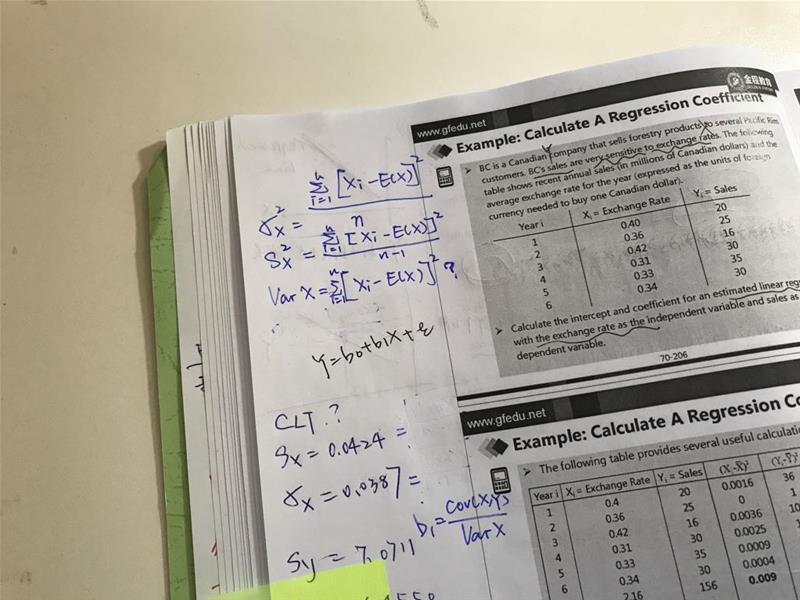 金程教育
www.gfedu.net
Example: Calculate A Regression Coefficient
BC is a Canadian company that sells forestry products to several Pacific Rim
customers. BC's sales are very sensitive to exchange rates. The following
table shows recent annual sales (in millions of Canadian dollars) and the
average exchange rate for the year (expressed as the units of foreign
currency needed to buy one Canadian dollar).
Year i Xi = Exchange Rate Yi = Sales
1 0.40 20
2 0.36 25
3 0.42 16
4 0.31 30
5 0.33 35
6 0.34 30
Calculate the intercept and coefficient for an estimated linear reg
with the exchange rate as the independent variable and sales as
dependent variable.
70-206
σx² = Σ i=1 n [Xi-E(X)]² / n
Sx² = Σ i=1 n [Xi-E(X)]² / n-1
Var X = Σ i=1 n [Xi-E(X)]² ?
Y=b0+b1X+ε
CLT ?
Sx = 0.0424 =
σx = 0.0387 =
b1 = cov(X,Y) / Var X
Sy = 7.0711
www.gfedu.net
Example: Calculate A Regression Co
The following table provides several useful calculati
Year i Xi = Exchange Rate Yi = Sales (X-X̄)² (Yi-Ȳ)²
1 0.4 20 0.0016 36
2 0.36 25 0 1
3 0.42 16 0.0036 10
4 0.31 30 0.0025
5 0.33 35 0.0009
6 0.34 30 0.0004
2.16 156 0.009